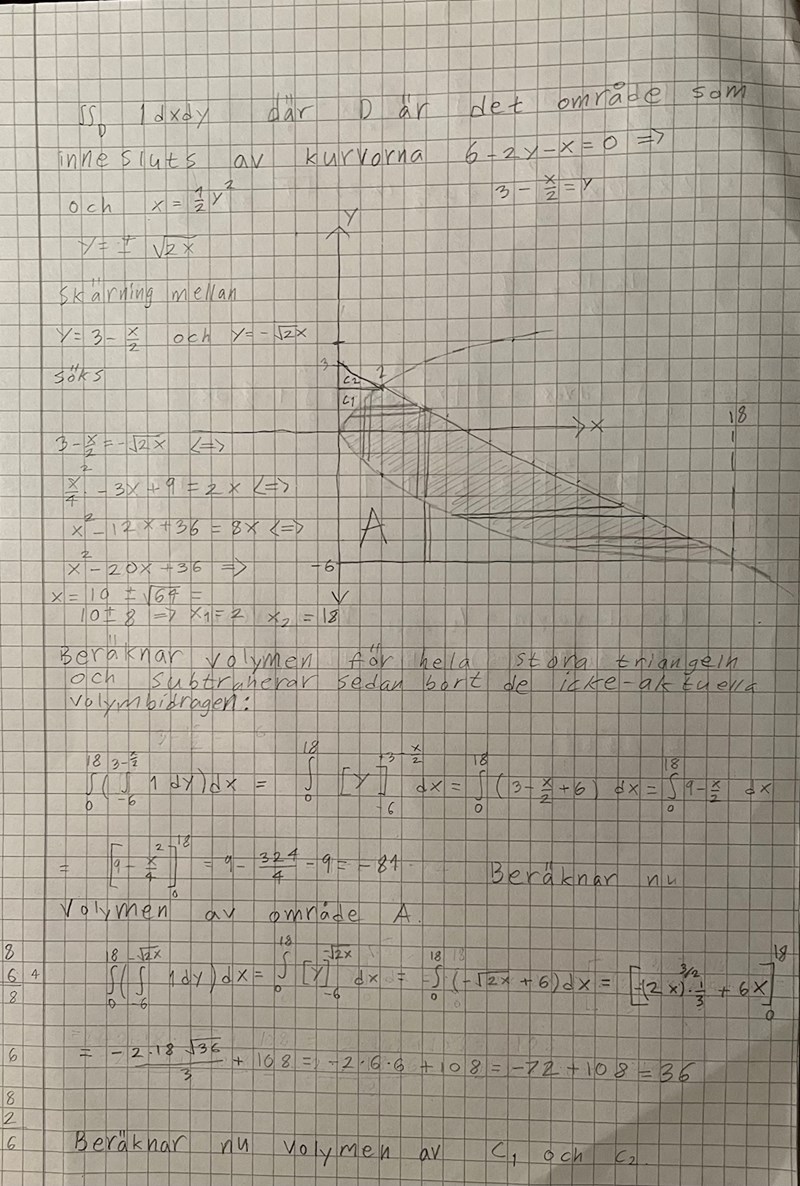 ∬_D 1dxdy där D är det område som
innesluts av kurvorna 6-2y-x=0 =>
3 - x/2 = y
och x = 1/2 y²
y = ± √2x
Skärning mellan
y = 3 - x/2 och y = -√2x
söks
3 - x/2 = -√2x <=>
x²/4 - 3x + 9 = 2x <=>
x² - 12x + 36 = 8x <=>
x² - 20x + 36 =>
x = 10 ± √64 =
10 ± 8 => x₁ = 2 x₂ = 18
Y
3
C2
2
C1
X
18
A
-6
Beräknar volymen för hela stora triangeln
och subtraherar sedan bort de icke-aktuella
volymbidragen:
∫₀¹⁸ (∫₋₆^(3-x/2) 1 dy) dx = ∫₀¹⁸ [y]₋₆^(+3-x/2) dx = ∫₀¹⁸ (3 - x/2 + 6) dx = ∫₀¹⁸ 9 - x/2 dx
= [9 - x²/4]₀¹⁸ = 9 - 324/4 - 9 = -81 Beräknar nu
volymen av område A.
∫₀¹⁸ (∫₋₆^(-√2x) 1 dy) dx = ∫₀¹⁸ [y]₋₆^(-√2x) dx = -∫₀¹⁸ (-√2x + 6) dx = [-(2x)^(3/2) · 1/3 + 6x]₀¹⁸
= - 2·18√36/3 + 108 = -2·6·6 + 108 = -72 + 108 = 36
Beräknar nu volymen av C₁ och C₂.
8
6 4
8
6
8
2
6